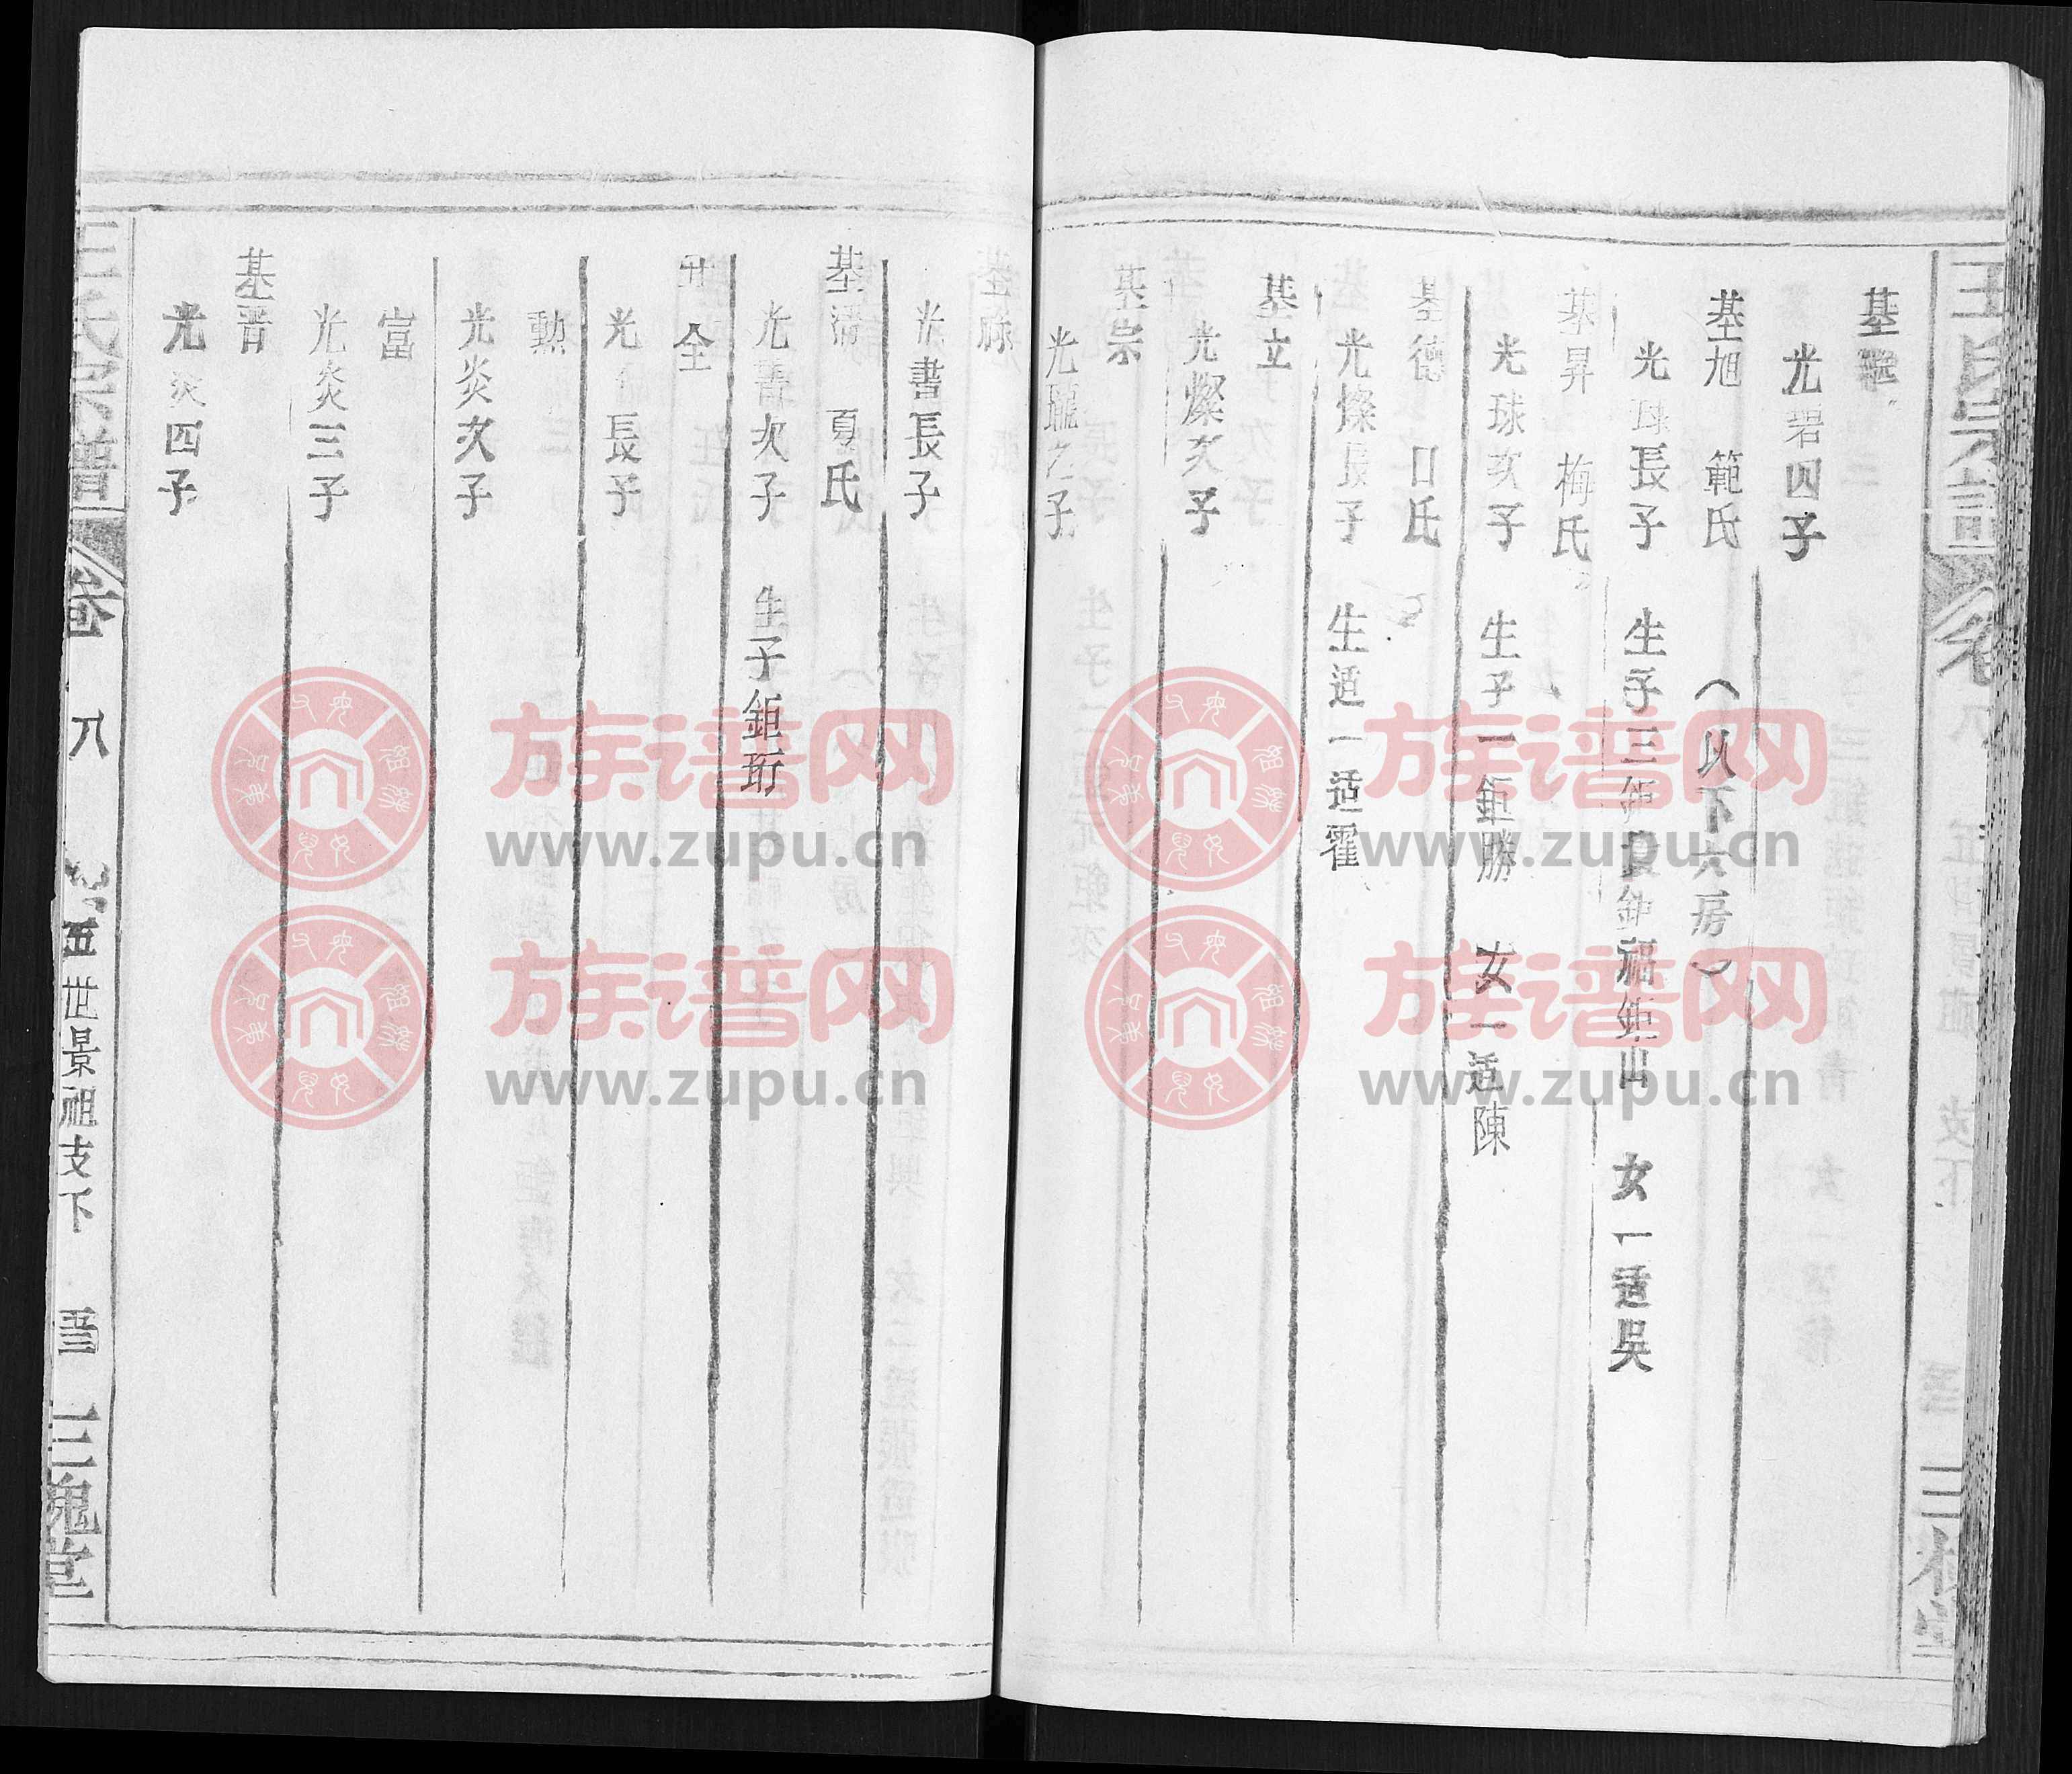 王氏宗譜 卷八
基
光碧四子
基旭 範氏 （以下六房）
光球長子 生子三鉅 鉅福鉅山 女一適吳
基昇 梅氏
光球次子 生子一鉅勝 女一適陳
基德 口氏
光燦長子 生適一適霍
基立
光燦次子
基宗
光瓏之子
基祿
光書長子
基清 夏氏
光書次子 生子鉅珩
全
光 長子
勲
光炎次子
富
光炎三子
基晋
光炎四子
王氏宗譜 卷 八 五世景祖支下 三槐堂
族谱网
www.zupu.cn
族谱网
www.zupu.cn
族谱网
www.zupu.cn
族谱网
www.zupu.cn